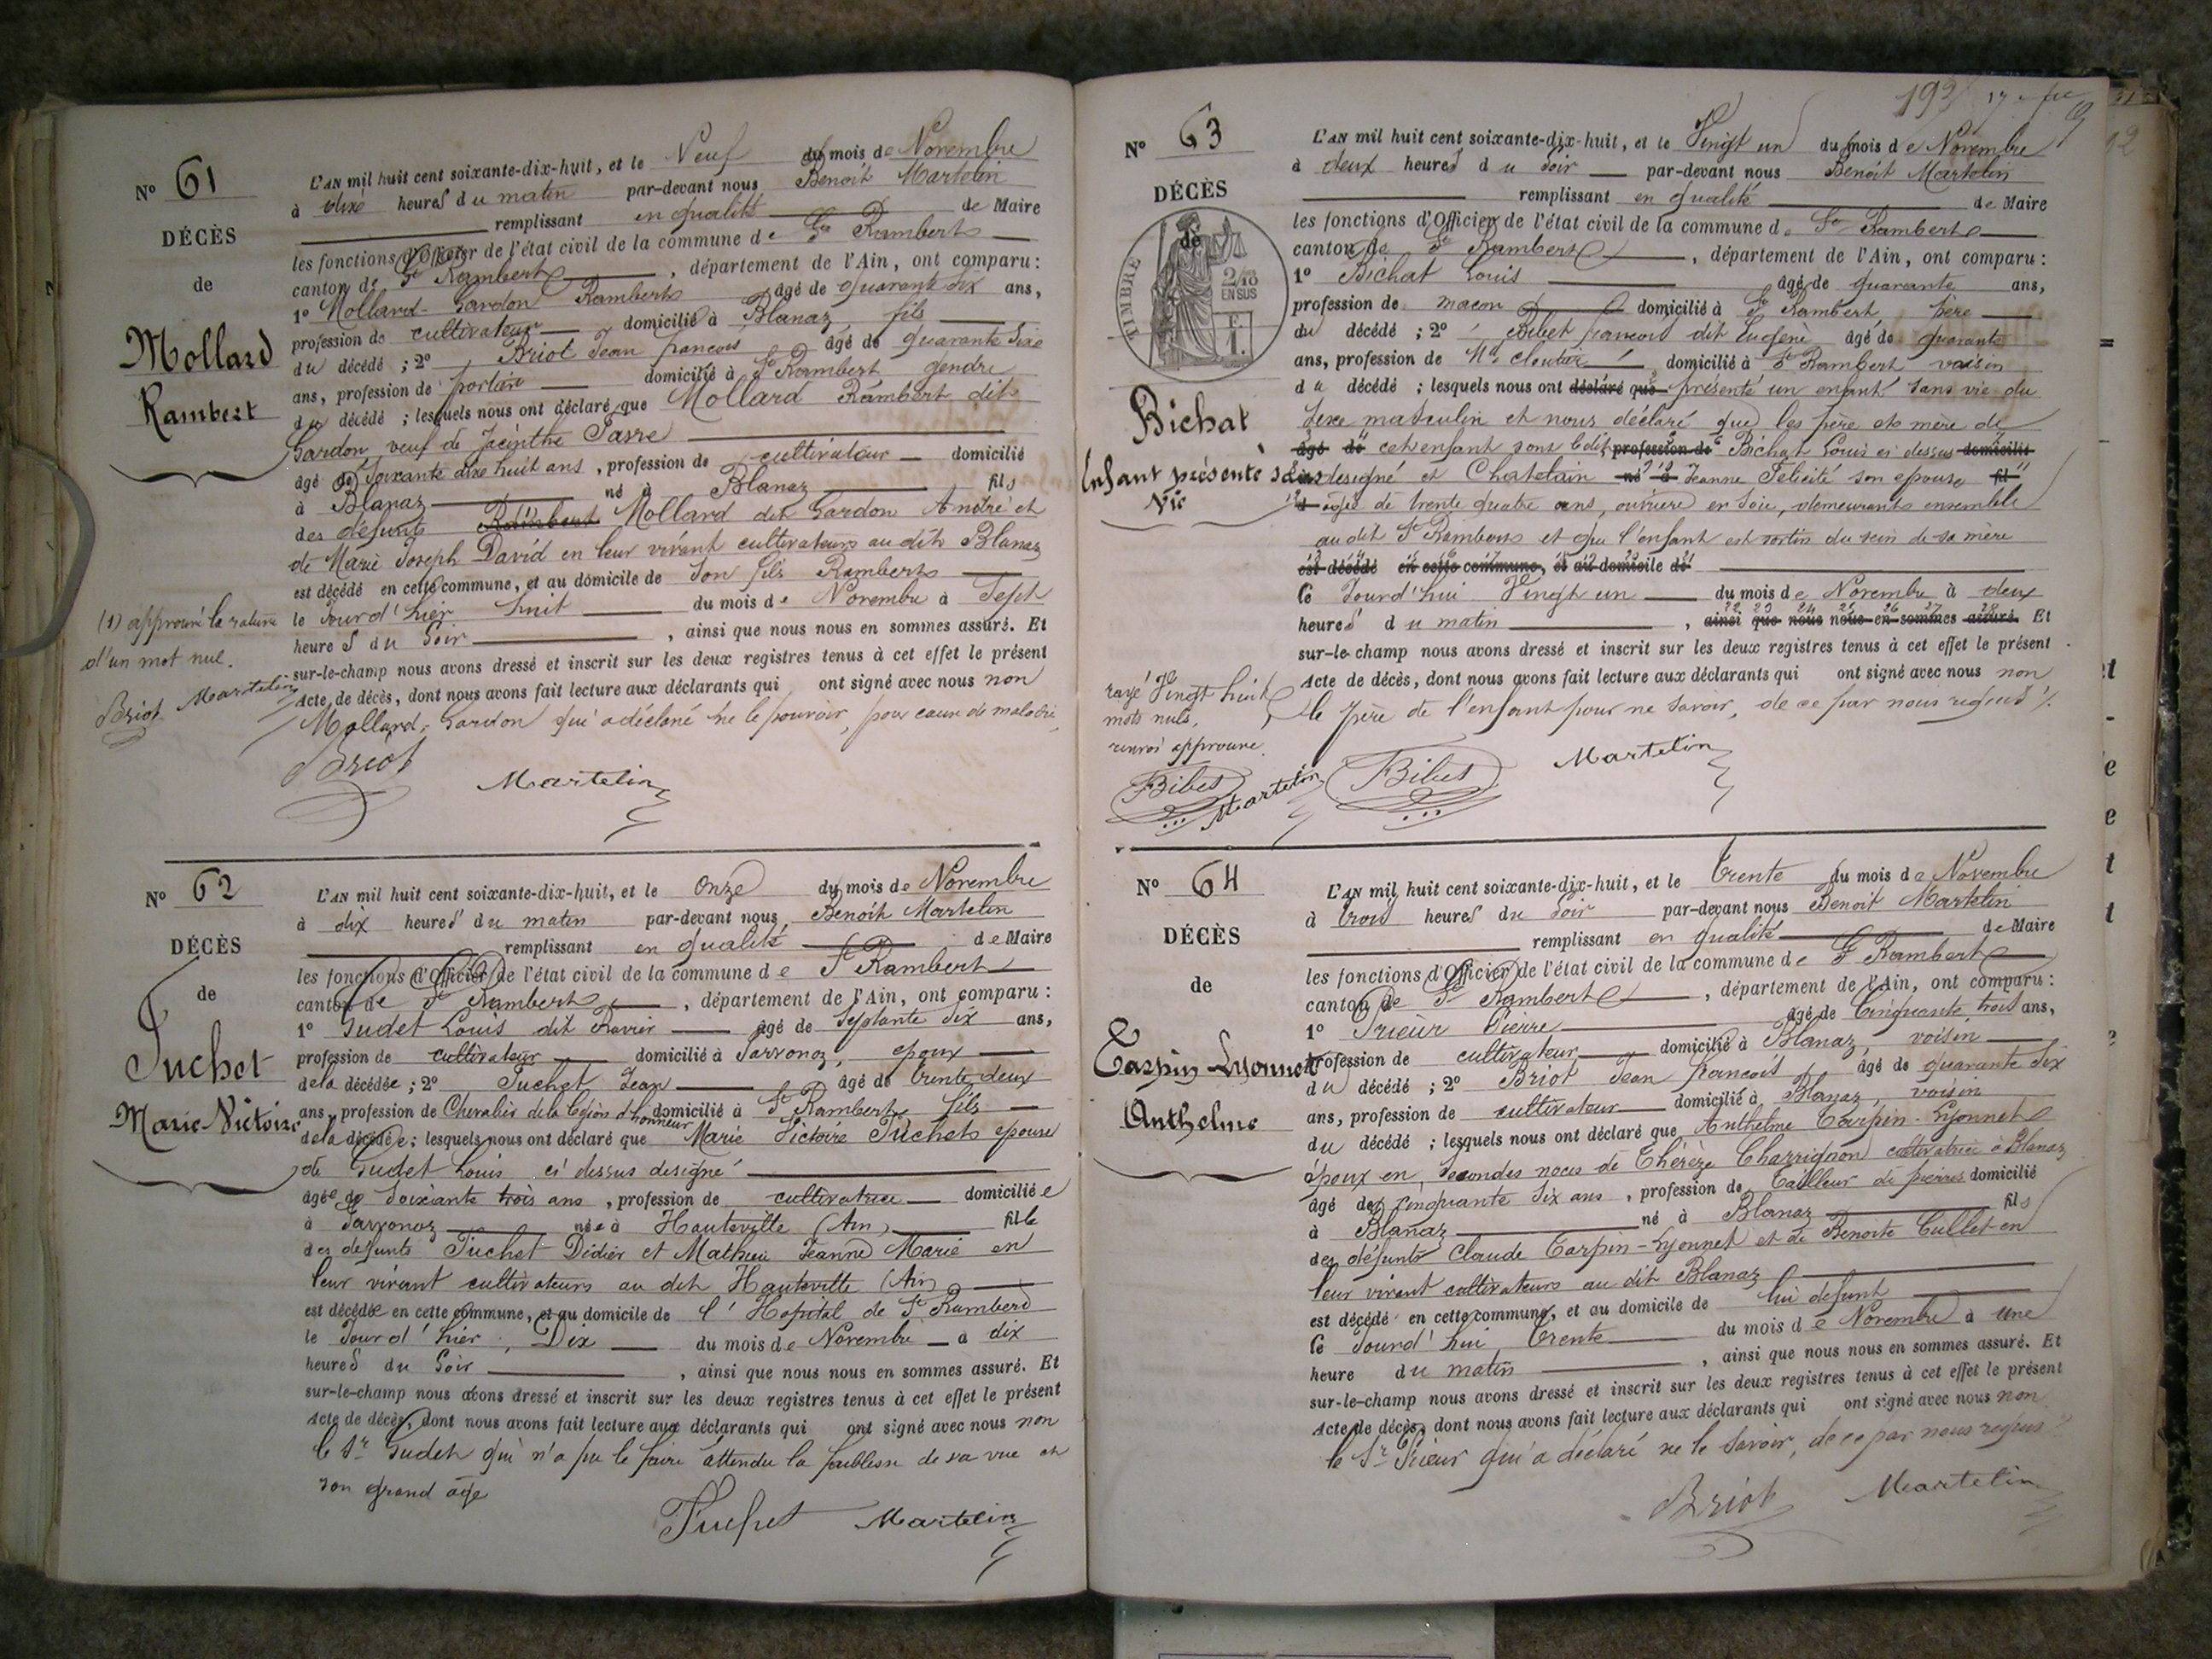 N° 61
DÉCÈS
de
Mollard
Rambert
L'AN mil huit cent soixante-dix-huit, et le Neuf du mois de Novembre
à dixe heures du matin par-devant nous Benoit Martelin
remplissant en qualité de Maire
les fonctions d'Officier de l'état civil de la commune de St Rambert
canton de St Rambert, département de l'Ain, ont comparu :
1° Mollard-Gardon Rambert âgé de quarante dix ans,
profession de cultivateur domicilié à Blanaz fils
du décédé ; 2° Briot Jean françois âgé de quarante sixe
ans, profession de domicilié à St Rambert gendre
du décédé ; lesquels nous ont déclaré que Mollard Rambert dit
Gardon veuf de Jacinthe
âgé de Soixante dixe huit ans, profession de cultivateur domicilié
à Blanaz né à Blanaz fils
des défunts Rambert Mollard dit Gardon André et
de Marie Joseph David en leur vivant cultivateurs au dit Blanaz
est décédé en cette commune, et au domicile de Son fils Rambert
le Jourd'hier huit du mois de Novembre à Sept
heures du Soir, ainsi que nous nous en sommes assuré. Et
sur-le-champ nous avons dressé et inscrit sur les deux registres tenus à cet effet le présent
Acte de décès, dont nous avons fait lecture aux déclarants qui ont signé avec nous non
Mollard-Gardon qui a déclaré ne le pouvoir, pour cause de maladie
(1) approuvé la rature
d'un mot nul.
Briot Martelin
Briot Martelin
N° 62
DÉCÈS
de
Juchet
Marie-Victoire
L'AN mil huit cent soixante-dix-huit, et le Onze du mois de Novembre
à dix heures du matin par-devant nous Benoit Martelin
remplissant en qualité de Maire
les fonctions d'Officier de l'état civil de la commune de St Rambert
canton de St Rambert, département de l'Ain, ont comparu :
1° Gudet Louis dit âgé de Septante dix ans,
profession de cultivateur domicilié à époux
de la décédée ; 2° Juchet Jean âgé de trente deux
ans, profession de Chevalier de la Légion d'honneur domicilié à St Rambert fils
de la décédée ; lesquels nous ont déclaré que Marie Victoire Juchet épouse
de Gudet Louis ci dessus designé
âgée de Soixante trois ans, profession de cultivatrice domiciliée
à née à Hauteville (Ain) fille
des défunts Juchet Didier et Mathieu Jeanne Marie en
leur vivant cultivateurs au dit Hauteville (Ain)
est décédée en cette commune, et au domicile de l'Hopital de St Rambert
le Jourd'hier, Dix du mois de Novembre à dix
heures du Soir, ainsi que nous nous en sommes assuré. Et
sur-le-champ nous avons dressé et inscrit sur les deux registres tenus à cet effet le présent
Acte de décès, dont nous avons fait lecture aux déclarants qui ont signé avec nous non
le Sr Gudet qui n'a pu le faire attendu la faiblesse de sa vue et
son grand âge
Juchet Martelin
193
N° 63
DÉCÈS
de
TIMBRE
2/10
EN SUS
F.
1.
Bichat
Enfant présenté sans
Vie
L'AN mil huit cent soixante-dix-huit, et le Vingt un du mois de Novembre
à deux heures du Soir par-devant nous Benoit Martelin
remplissant en qualité de Maire
les fonctions d'Officier de l'état civil de la commune de St Rambert
canton de St Rambert, département de l'Ain, ont comparu :
1° Bichat Louis âgé de quarante ans,
profession de maçon domicilié à St Rambert père
du décédé ; 2° Bibet françois dit Eugène âgé de quarante
ans, profession de Md cloutier domicilié à St Rambert voisin
du décédé ; lesquels nous ont déclaré que présenté un enfant sans vie du
sexe masculin et nous déclaré que les père et mère de
âgé de cet enfant sont le dit profession de Bichat Louis ci dessus domicilié
désigné et Chatelain né à Jeanne Félicité son épouse fil
âgée de trente quatre ans, ouvrière en Soie, demeurants ensemble
au dit St Rambert et que l'enfant est sortis du sein de sa mère
est décédé en cette commune, et au domicile de
le Jourd'hui Vingt un du mois de Novembre à deux
heures du matin, ainsi que nous nous en sommes assuré. Et
sur-le-champ nous avons dressé et inscrit sur les deux registres tenus à cet effet le présent
Acte de décès, dont nous avons fait lecture aux déclarants qui ont signé avec nous non
le père de l'enfant pour ne savoir, de ce par nous requis
rayé Vingt huit
mots nuls,
renvoi approuvé
Bibet Martelin Bibet Martelin
N° 64
DÉCÈS
de
Tarpin-Lyonnet
Anthelme
L'AN mil huit cent soixante-dix-huit, et le trente du mois de Novembre
à trois heures du Soir par-devant nous Benoit Martelin
remplissant en qualité de Maire
les fonctions d'Officier de l'état civil de la commune de St Rambert
canton de St Rambert, département de l'Ain, ont comparu :
1° Prieur Pierre âgé de Cinquante trois ans,
profession de cultivateur domicilié à Blanaz, voisin
du décédé ; 2° Briot Jean françois âgé de quarante Six
ans, profession de cultivateur domicilié à Blanaz, voisin
du décédé ; lesquels nous ont déclaré que Anthelme Tarpin-Lyonnet
époux en secondes noces de Thérèze Charrignon cultivatrice à Blanaz
âgé de cinquante Six ans, profession de tailleur de pierres domicilié
à Blanaz né à Blanaz fils
des défunts Claude Tarpin-Lyonnet et de Benoite Cullet en
leur vivant cultivateurs au dit Blanaz
est décédé en cette commune, et au domicile de lui défunt
le Jourd'hui trente du mois de Novembre à une
heure du matin, ainsi que nous nous en sommes assuré. Et
sur-le-champ nous avons dressé et inscrit sur les deux registres tenus à cet effet le présent
Acte de décès, dont nous avons fait lecture aux déclarants qui ont signé avec nous non
le Sr Prieur qui a déclaré ne le Savoir, de ce par nous requis
Briot Martelin